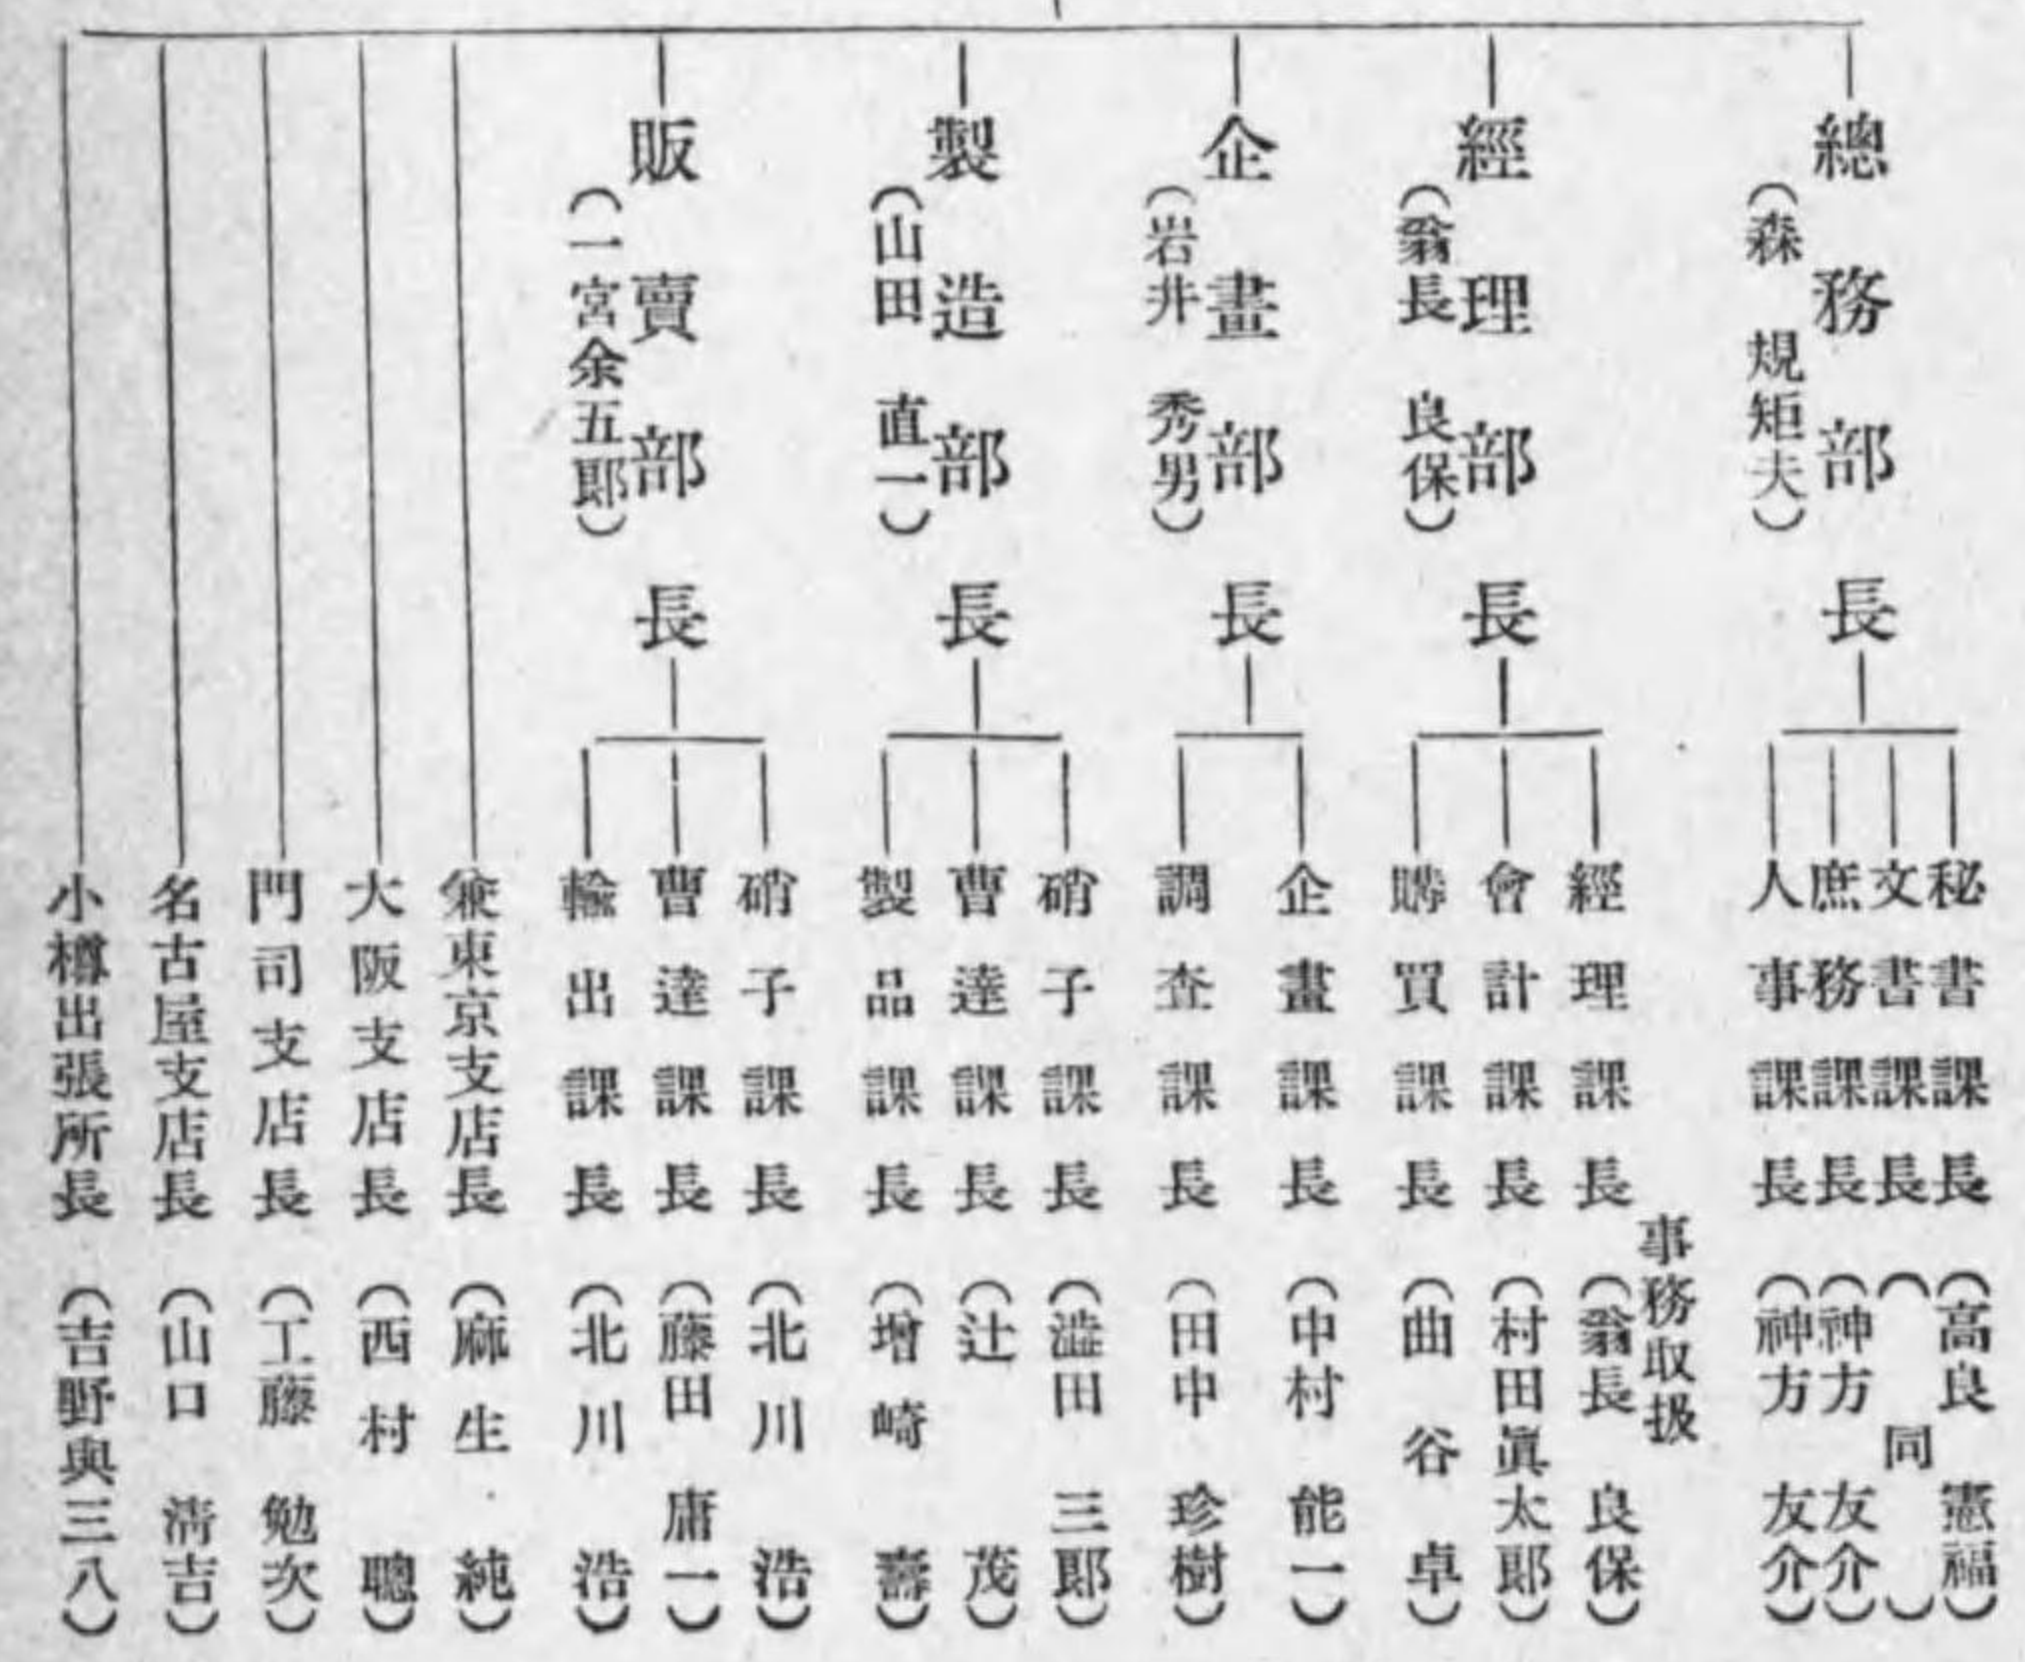 總務部長
（森　規矩夫）
秘書課長（高良　憲福）
文書課長（　同　）
庶務課長（神方　友介）
人事課長（神方　友介）
經理部長
（翁長　良保）
事務取扱
經理課長（翁長　良保）
會計課長（村田眞太郎）
購買課長（曲谷　卓）
企畫部長
（岩井　秀男）
企畫課長（中村　能一）
調査課長（田中　珍樹）
製造部長
（山田　直一）
硝子課長（澁田　三郎）
曹達課長（辻　茂）
製品課長（增崎　壽）
販賣部長
（一宮余五郎）
硝子課長（北川　浩）
曹達課長（藤田　庸一）
輸出課長（北川　浩）
兼東京支店長（麻生　純）
大阪支店長（西村　聰）
門司支店長（工藤　勉次）
名古屋支店長（山口　淸吉）
小樽出張所長（吉野與三八）